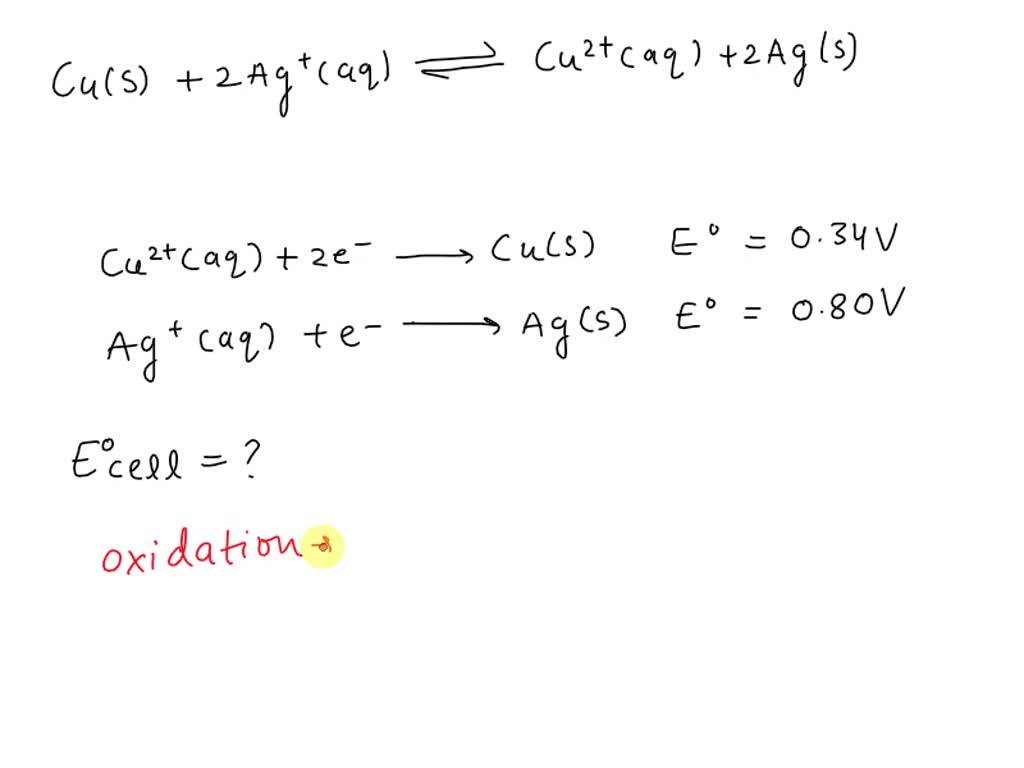 Cu(s) + 2Ag⁺(aq) ⇌ Cu²⁺(aq) + 2Ag(s)
Cu²⁺(aq) + 2e⁻ ⟶ Cu(s) E° = 0.34V
Ag⁺(aq) + e⁻ ⟶ Ag(s) E° = 0.80V
E°cell = ?
oxidation →